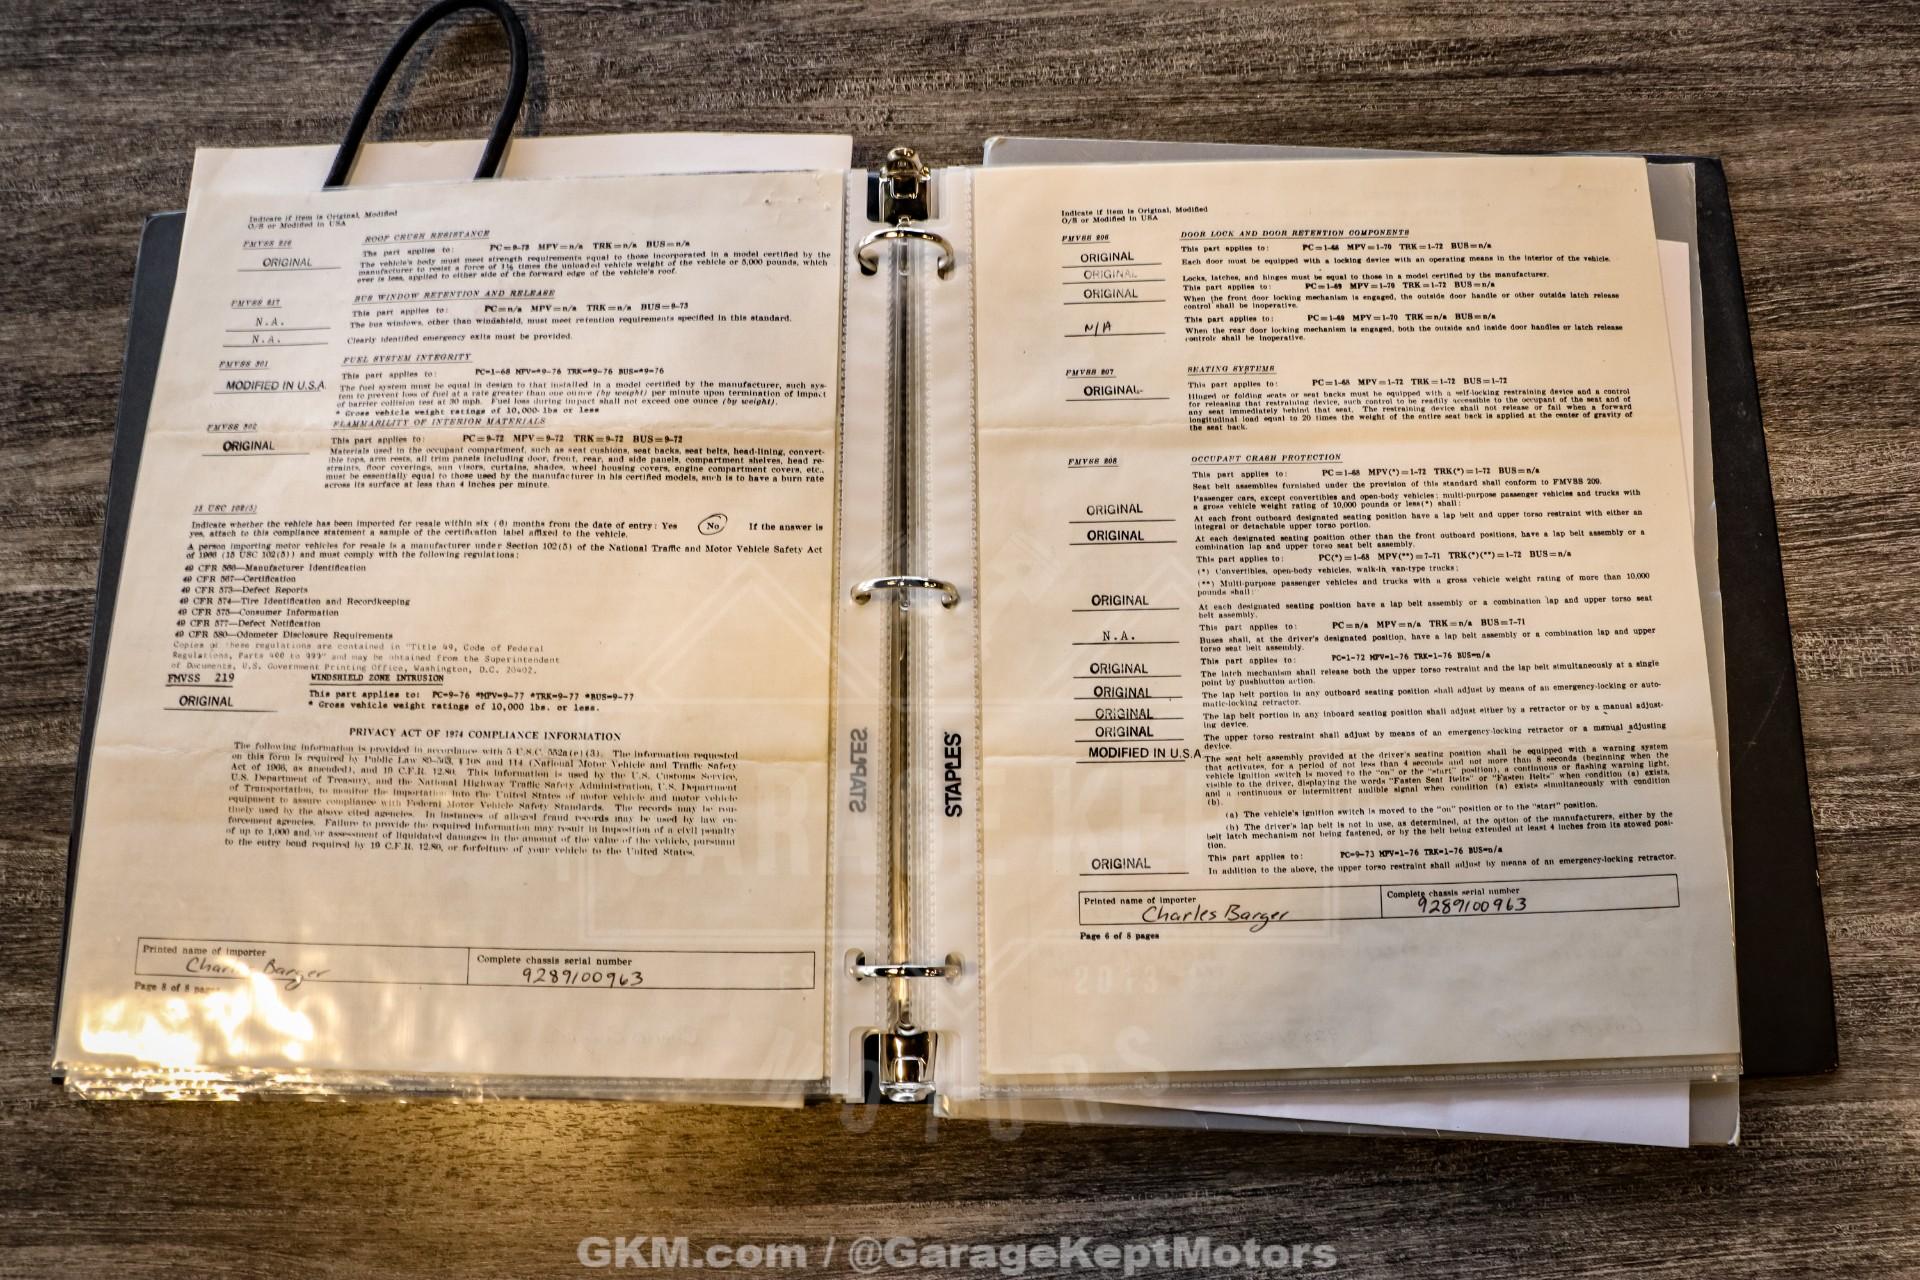 Indicate if item is Original, Modified
O/S or Modified in USA
FMVSS 216
ROOF CRUSH RESISTANCE
ORIGINAL
This part applies to: PC=9-73 MPV=n/a TRK=n/a BUS=n/a
The vehicle's body must meet strength requirements equal to those incorporated in a model certified by the
manufacturer to resist a force of 1½ times the unloaded vehicle weight of the vehicle or 5,000 pounds, which
over is less, applied to either side of the forward edge of the vehicle's roof.
FMVSS 217
BUS WINDOW RETENTION AND RELEASE
This part applies to: PC=n/a MPV=n/a TRK=n/a BUS=9-73
N.A.
The bus windows, other than windshield, must meet retention requirements specified in this standard.
N.A.
Clearly identified emergency exits must be provided.
FMVSS 301
FUEL SYSTEM INTEGRITY
This part applies to: PC=1-68 MPV=*9-76 TRK=*9-76 BUS=*9-76
MODIFIED IN U.S.A.
The fuel system must be equal in design to that installed in a model certified by the manufacturer, such sys-
tem to prevent loss of fuel at a rate greater than one ounce (by weight) per minute upon termination of impact
of barrier collision test at 30 mph. Fuel loss during impact shall not exceed one ounce (by weight).
* Gross vehicle weight ratings of 10,000 lbs or less
FMVSS 302
FLAMMABILITY OF INTERIOR MATERIALS
ORIGINAL
This part applies to: PC=9-72 MPV=9-72 TRK=9-72 BUS=9-72
Materials used in the occupant compartment, such as seat cushions, seat backs, seat belts, head-lining, convert-
ible tops, arm rests, all trim panels including door, front, rear, and side panels, compartment shelves, head re-
straints, floor coverings, sun visors, curtains, shades, wheel housing covers, engine compartment covers, etc.,
must be essentially equal to those used by the manufacturer in his certified models, such is to have a burn rate
across its surface at less than 4 inches per minute.
15 USC 102(5)
Indicate whether the vehicle has been imported for resale within six (6) months from the date of entry: Yes No If the answer is
yes, attach to this compliance statement a sample of the certification label affixed to the vehicle.
A person importing motor vehicles for resale is a manufacturer under Section 102(5) of the National Traffic and Motor Vehicle Safety Act
of 1966 (15 USC 102(5)) and must comply with the following regulations:
49 CFR 566—Manufacturer Identification
49 CFR 567—Certification
49 CFR 573—Defect Reports
49 CFR 574—Tire Identification and Recordkeeping
49 CFR 575—Consumer Information
49 CFR 577—Defect Notification
49 CFR 580—Odometer Disclosure Requirements
Copies of these regulations are contained in "Title 49, Code of Federal
Regulations, Parts 400 to 999" and may be obtained from the Superintendent
of Documents, U.S. Government Printing Office, Washington, D.C. 20402.
FMVSS 219
WINDSHIELD ZONE INTRUSION
ORIGINAL
This part applies to: PC=9-76 *MPV=9-77 *TRK=9-77 *BUS=9-77
* Gross vehicle weight ratings of 10,000 lbs. or less.
PRIVACY ACT OF 1974 COMPLIANCE INFORMATION
The following information is provided in accordance with 5 U.S.C. 552a(e)(3). The information requested
on this form is required by Public Law 89-563, §108 and 114 (National Motor Vehicle and Traffic Safety
Act of 1966, as amended), and 19 C.F.R. 12.80. This information is used by the U.S. Customs Service,
U.S. Department of Treasury, and the National Highway Traffic Safety Administration, U.S. Department
of Transportation, to monitor the importation into the United States of motor vehicle and motor vehicle
equipment to assure compliance with Federal Motor Vehicle Safety Standards. The records may be rou-
tinely used by the above cited agencies. In instances of alleged fraud records may be used by law en-
forcement agencies. Failure to provide the required information may result in imposition of a civil penalty
of up to 1,000 and/or assessment of liquidated damages in the amount of the value of the vehicle, pursuant
to the entry bond required by 19 C.F.R. 12.80, or forfeiture of your vehicle to the United States.
Printed name of importer
Charles Barger
Complete chassis serial number
9289100963
Page 8 of 8 pages
STAPLES
STAPLES
Indicate if item is Original, Modified
O/S or Modified in USA
FMVSS 206
DOOR LOCK AND DOOR RETENTION COMPONENTS
This part applies to: PC=1-68 MPV=1-70 TRK=1-72 BUS=n/a
ORIGINAL
Each door must be equipped with a locking device with an operating means in the interior of the vehicle.
ORIGINAL
Locks, latches, and hinges must be equal to those in a model certified by the manufacturer.
This part applies to: PC=1-69 MPV=1-70 TRK=1-72 BUS=n/a
ORIGINAL
When the front door locking mechanism is engaged, the outside door handle or other outside latch release
control shall be inoperative.
This part applies to: PC=1-69 MPV=1-70 TRK=1-72 BUS=n/a
N/A
When the rear door locking mechanism is engaged, both the outside and inside door handles or latch release
controls shall be inoperative.
FMVSS 207
SEATING SYSTEMS
This part applies to: PC=1-68 MPV=1-72 TRK=1-72 BUS=1-72
ORIGINAL
Hinged or folding seats or seat backs must be equipped with a self-locking restraining device and a control
for releasing that restraining device, such control to be readily accessible to the occupant of the seat and of
any seat immediately behind that seat. The restraining device shall not release or fail when a forward
longitudinal load equal to 20 times the weight of the entire seat back is applied at the center of gravity of
the seat back.
FMVSS 208
OCCUPANT CRASH PROTECTION
This part applies to: PC=1-68 MPV(*)=1-72 TRK(*)=1-72 BUS=n/a
Seat belt assemblies furnished under the provision of this standard shall conform to FMVSS 209.
Passenger cars, except convertibles and open-body vehicles; multi-purpose passenger vehicles and trucks with
a gross vehicle weight rating of 10,000 pounds or less(*) shall:
ORIGINAL
At each front outboard designated seating position have a lap belt and upper torso restraint with either an
integral or detachable upper torso portion.
ORIGINAL
At each designated seating position other than the front outboard positions, have a lap belt assembly or a
combination lap and upper torso seat belt assembly.
This part applies to: PC(*)=1-68 MPV(**)=7-71 TRK(*)(**)=1-72 BUS=n/a
(*) Convertibles, open-body vehicles, walk-in van-type trucks;
(**) Multi-purpose passenger vehicles and trucks with a gross vehicle weight rating of more than 10,000
pounds shall:
ORIGINAL
At each designated seating position have a lap belt assembly or a combination lap and upper torso seat
belt assembly.
This part applies to: PC=n/a MPV=n/a TRK=n/a BUS=7-71
N.A.
Buses shall, at the driver's designated position, have a lap belt assembly or a combination lap and upper
torso seat belt assembly.
This part applies to: PC=1-72 MPV=1-76 TRK=1-76 BUS=n/a
ORIGINAL
The latch mechanism shall release both the upper torso restraint and the lap belt simultaneously at a single
point by pushbutton action.
ORIGINAL
The lap belt portion in any outboard seating position shall adjust by means of an emergency-locking or auto-
matic-locking retractor.
ORIGINAL
The lap belt portion in any inboard seating position shall adjust either by a retractor or by a manual adjust-
ing device.
ORIGINAL
The upper torso restraint shall adjust by means of an emergency-locking retractor or a manual adjusting
device.
MODIFIED IN U.S.A.
The seat belt assembly provided at the driver's seating position shall be equipped with a warning system
that activates, for a period of not less than 4 seconds and not more than 8 seconds (beginning when the
vehicle ignition switch is moved to the "on" or the "start" position), a continuous or flashing warning light,
visible to the driver, displaying the words "Fasten Seat Belts" or "Fasten Belts" when condition (a) exists,
and a continuous or intermittent audible signal when condition (a) exists simultaneously with condition
(b).
(a) The vehicle's ignition switch is moved to the "on" position or to the "start" position.
(b) The driver's lap belt is not in use, as determined, at the option of the manufacturers, either by the
belt latch mechanism not being fastened, or by the belt being extended at least 4 inches from its stowed posi-
tion.
This part applies to: PC=9-73 MPV=1-76 TRK=1-76 BUS=n/a
ORIGINAL
In addition to the above, the upper torso restraint shall adjust by means of an emergency-locking retractor.
Printed name of importer
Charles Barger
Complete chassis serial number
9289100963
Page 6 of 8 pages
GARAGE KEPT
2013
MOTORS
GKM.com / @GarageKeptMotors